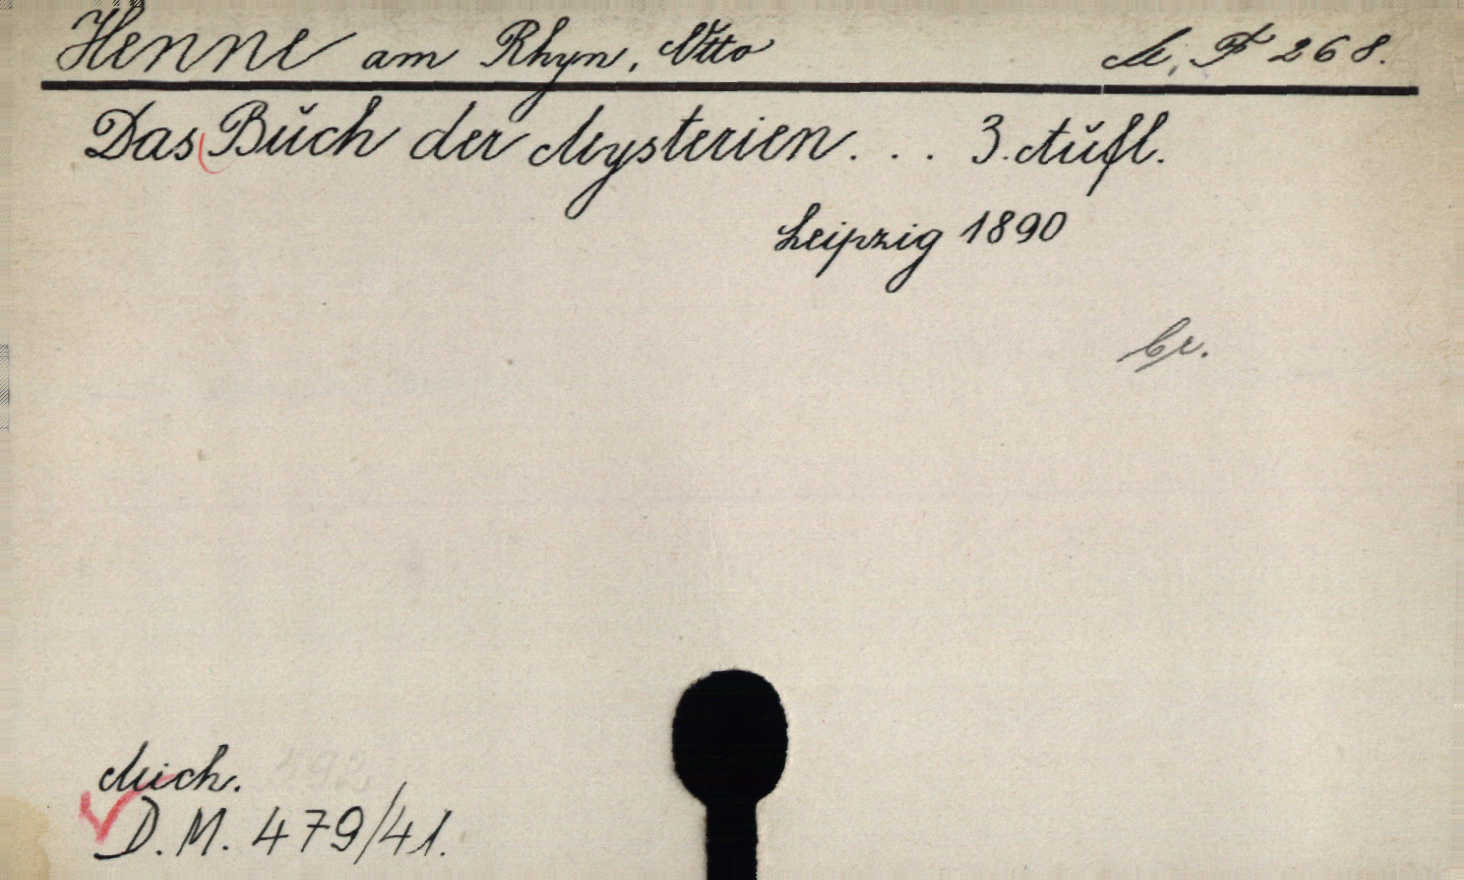 Henne am Rhyn, Otto M. F 268.
Das Buch der Mysterien. . . 3. Aufl.
Leipzig 1890
br.
Mich.
D. M. 479/41.